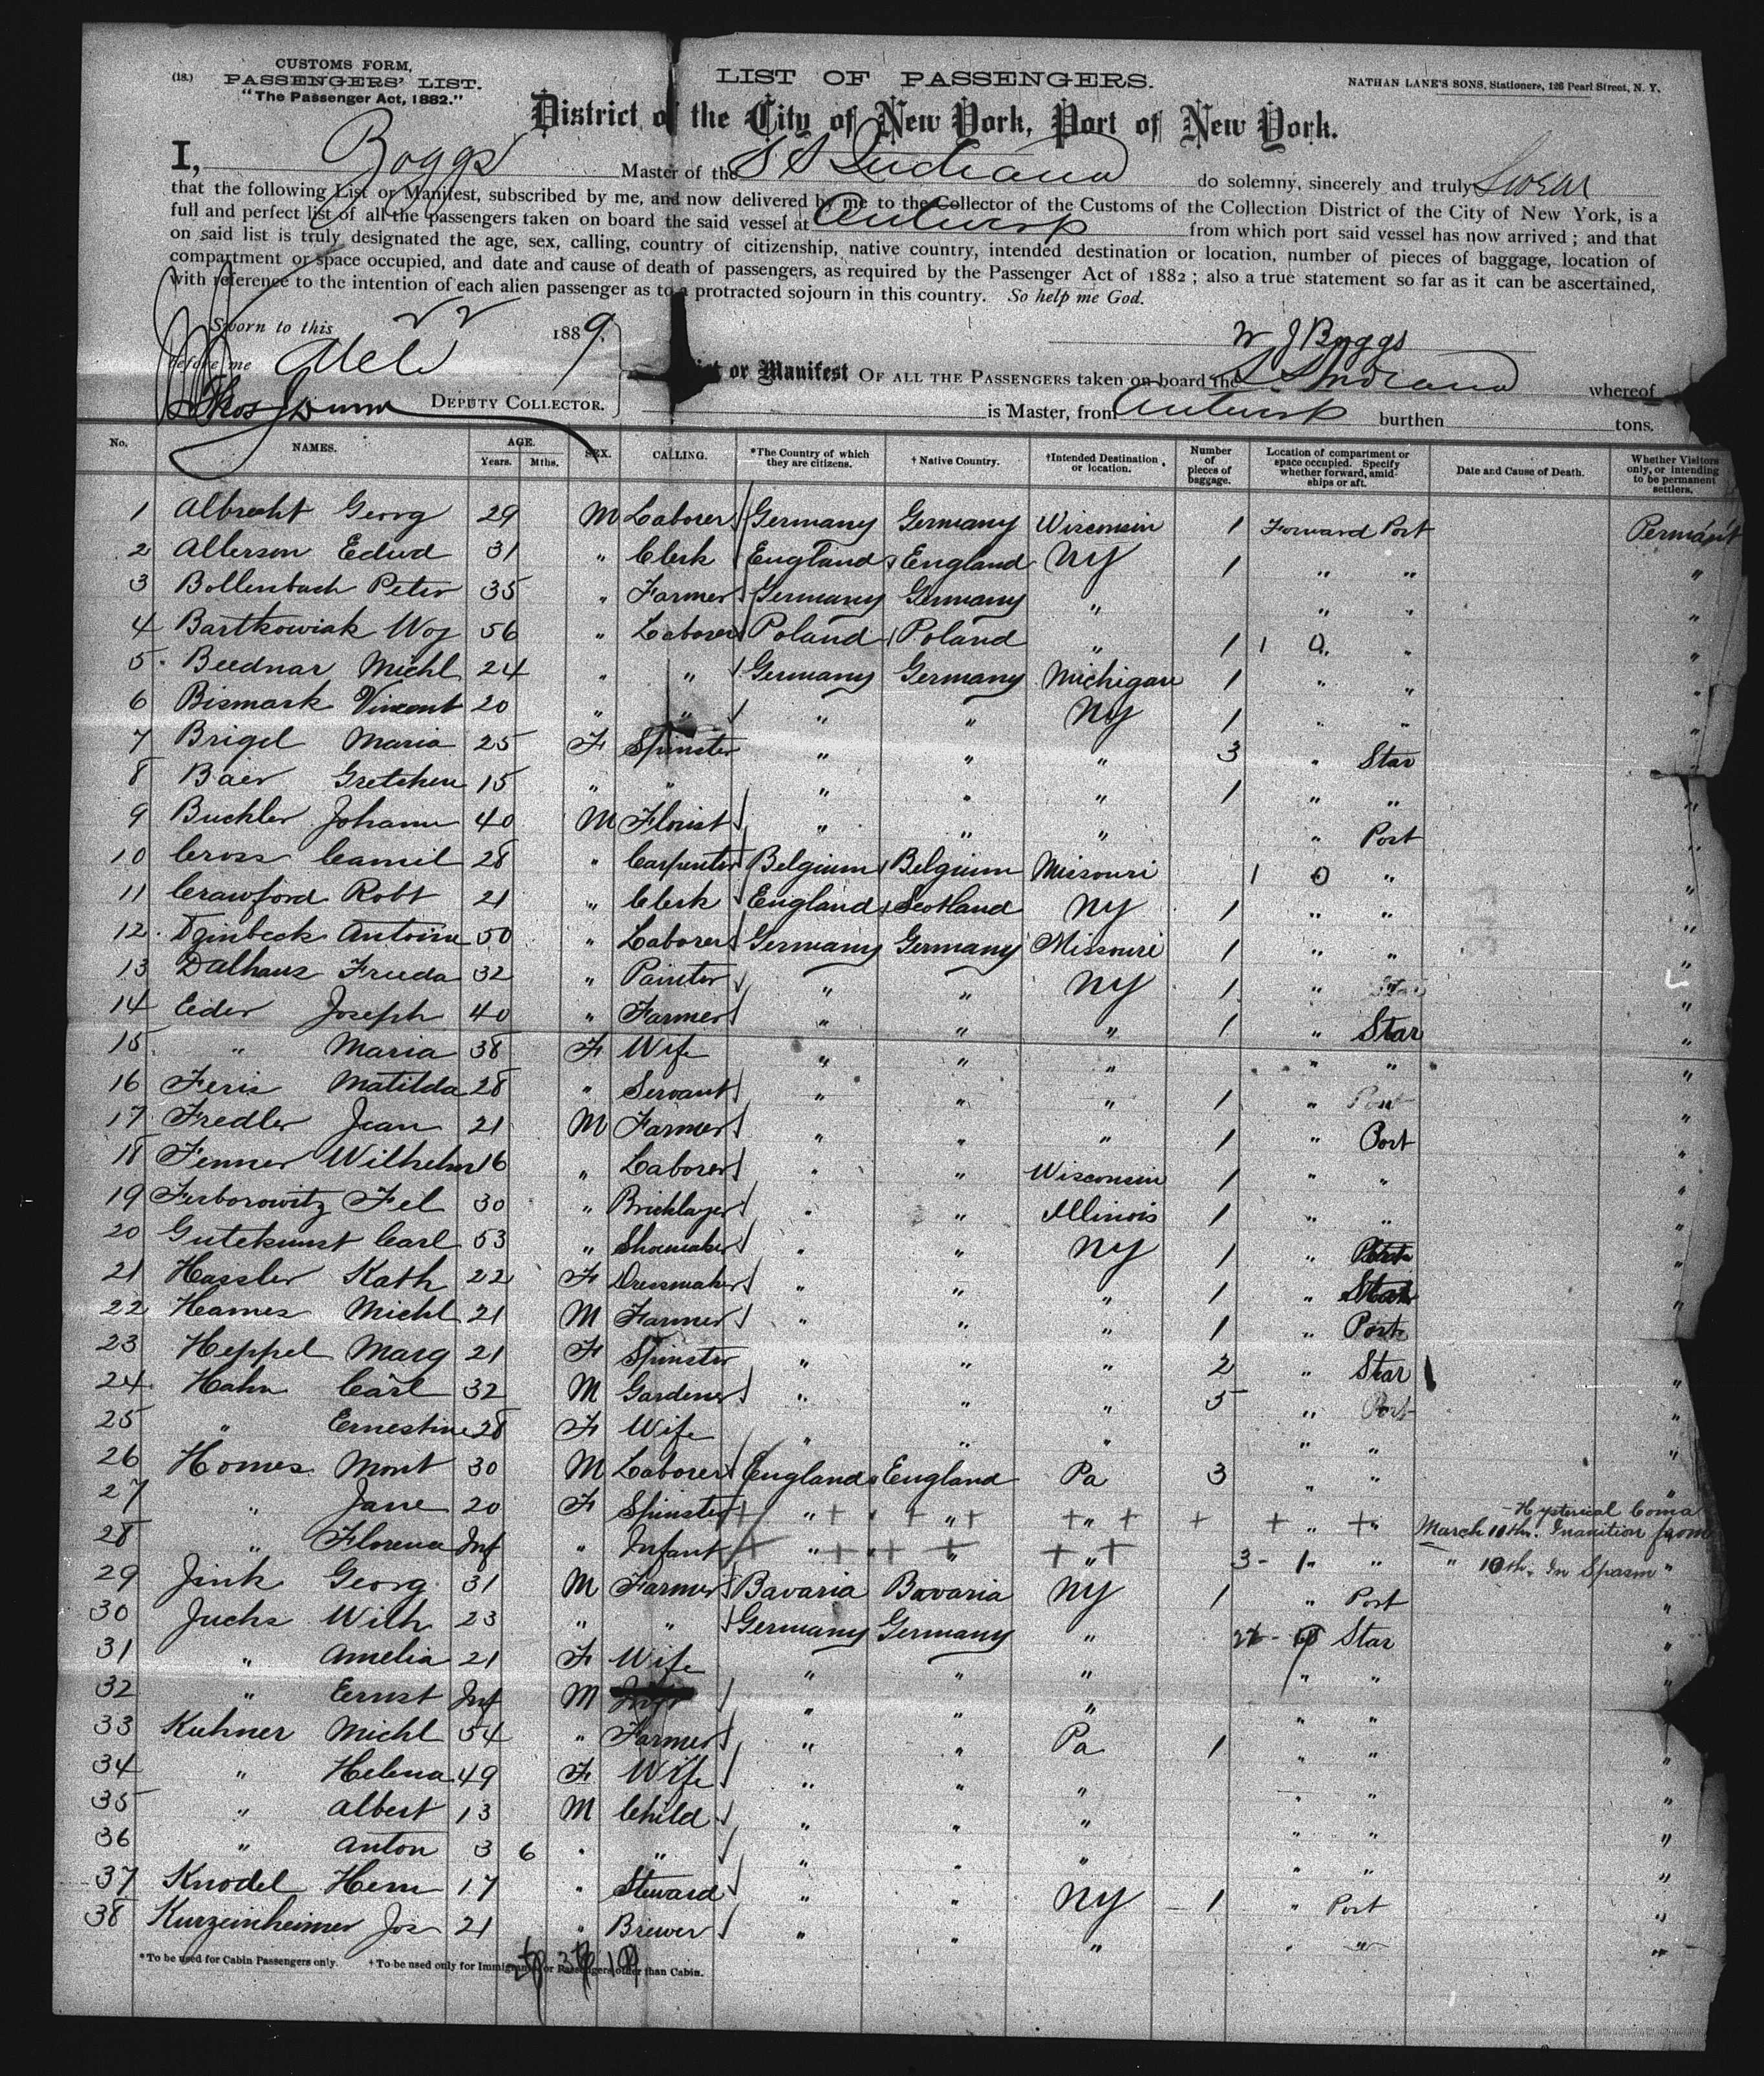 (18.) CUSTOMS FORM,
PASSENGERS' LIST.
"The Passenger Act, 1882."
LIST OF PASSENGERS.
NATHAN LANE'S SONS, Stationers, 126 Pearl Street, N. Y.
District of the City of New York, Port of New York.
I, Boggs Master of the S S Indiana do solemny, sincerely and truly Swear
that the following List or Manifest, subscribed by me, and now delivered by me to the Collector of the Customs of the Collection District of the City of New York, is a
full and perfect list of all the passengers taken on board the said vessel at Antwerp from which port said vessel has now arrived; and that
on said list is truly designated the age, sex, calling, country of citizenship, native country, intended destination or location, number of pieces of baggage, location of
compartment or space occupied, and date and cause of death of passengers, as required by the Passenger Act of 1882; also a true statement so far as it can be ascertained,
with reference to the intention of each alien passenger as to a protracted sojourn in this country. So help me God.
Sworn to this 22 1889
before me W J Boggs
DEPUTY COLLECTOR.
List or Manifest OF ALL THE PASSENGERS taken on board the S S Indiana whereof
is Master, from Antwerp burthen tons.
No. NAMES. AGE. Years. Mths. SEX. CALLING. *The Country of which they are citizens. †Native Country. †Intended Destination or location. Number of pieces of baggage. Location of compartment or space occupied. Specify whether forward, amidships or aft. Date and Cause of Death. Whether Visitors only, or intending to be permanent settlers.
1 Albrecht Georg 29 M Laborer Germany Germany Wisconsin 1 Forward Port Permán't
2 Allerson Edwd 31 " Clerk England England NY 1 " " "
3 Bollenbach Peter 35 " Farmer Germany Germany " " " "
4 Bartkowiak Woj 56 " Laborer Poland Poland " 1 1 0 " " "
5 Beednar Michl 24 " " Germany Germany Michigan 1 " " "
6 Bismark Vincent 20 " " " " NY 1 " " "
7 Brigel Maria 25 F Spinster " " " 3 " Star "
8 Baer Gretchen 15 " " " " " 1 " " "
9 Buchler Johann 40 M Florist " " " " Port "
10 Cross Camil 28 " Carpenter Belgium Belgium Missouri 1 0 " "
11 Crawford Robt 21 " Clerk England Scotland NY 1 " " "
12 Dzinbeck Antoine 50 " Laborer Germany Germany Missouri 1 " " "
13 Dalhaus Frieda 32 " Painter " " NY 1 " Star "
14 Eder Joseph 40 " Farmer " " " 1 " Star "
15 " Maria 38 F Wife " " " " " "
16 Feris Matilda 28 " Servant " " " 1 " Port "
17 Fredler Jean 21 M Farmer " " " 1 " Port "
18 Fenner Wilhelm 16 " Laborer " " Wisconsin 1 " " "
19 Ferborowitz Fel 30 " Bricklayer " " Illinois 1 " " "
20 Gutekunst Carl 53 " Shoemaker " " NY 1 " Port "
21 Hassler Kath 22 F Dressmaker " " " 1 " Star "
22 Hames Michl 21 M Farmer " " " 1 " Port
23 Heppel Marg 21 F Spinster " " " 2 " Star "
24 Hahn Carl 32 M Gardener " " " 5 " Port "
25 " Ernestine 28 F Wife " " " " " "
26 Homes Mont 30 M Laborer England England Pa 3 " " "
27 " Jane 20 F Spinster + " + + " + + " + + + " + " March 10th. Inanition from Hysterical Coma
28 " Florence Inf " Infant + " + + + " + " + 3 - 1 " " " 10th. In Spasm "
29 Jink Georg 31 M Farmer Bavaria Bavaria NY 1 " Port "
30 Juchs Wilh 23 " " Germany Germany " Star "
31 " Amelia 21 F Wife " " " " " "
32 " Ernst Inf M " " " " " "
33 Kuhner Michl 54 " Farmer " " Pa 1 " " "
34 " Helena 49 F Wife " " " " " "
35 " Albert 13 M Child " " " " " "
36 " Anton 3 6 " " " " " " " "
37 Knodel Herm 17 " Steward " " NY 1 " Port "
38 Kurzeinheimer Jos 21 " Brewer " " " " " "
*To be used for Cabin Passengers only. †To be used only for Immigrants or Passengers other than Cabin.